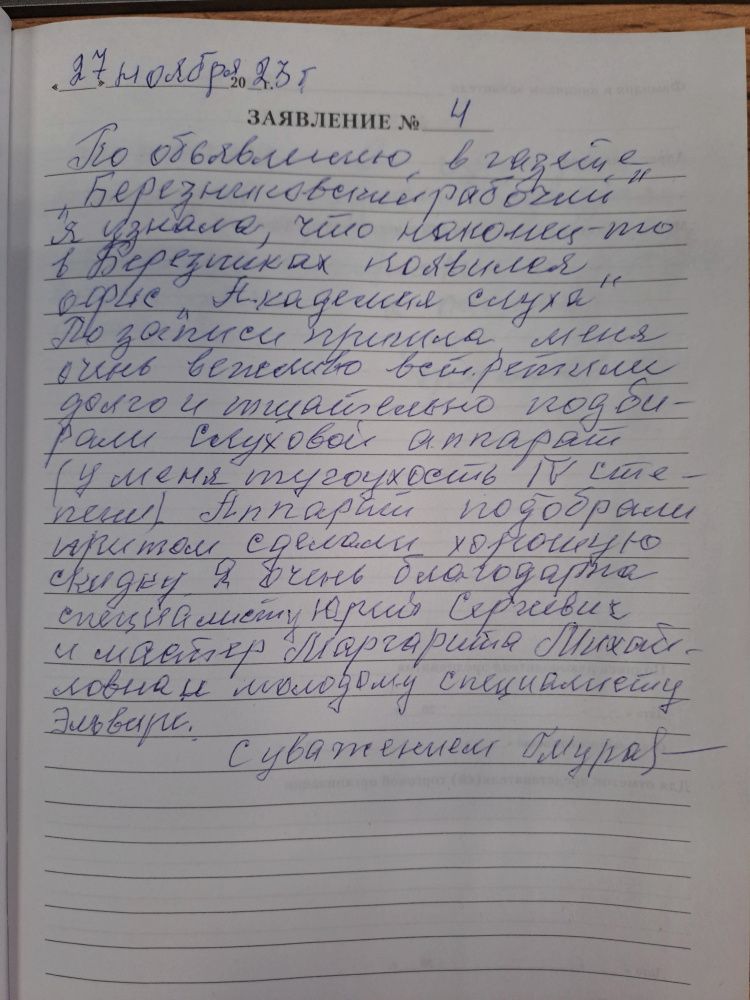 « 27 » ноября 20 23 г. г
ЗАЯВЛЕНИЕ № 4
По объявлению в газете
„Березниковский рабочий"
я узнала, что наконец-то
в Березниках появился
офис „Академия слуха"
По записи пришла, меня
очень вежливо встретили
долго и тщательно подби-
рали слуховой аппарат
(у меня тугоухость IV сте-
пени). Аппарат подобрали
притом сделали хорошую
скидку. Я очень благодарна
специалисту Юрий Сергеевич
и мастер Маргарита Михай-
ловна и молодому специалисту
Эльвире.
С уважением